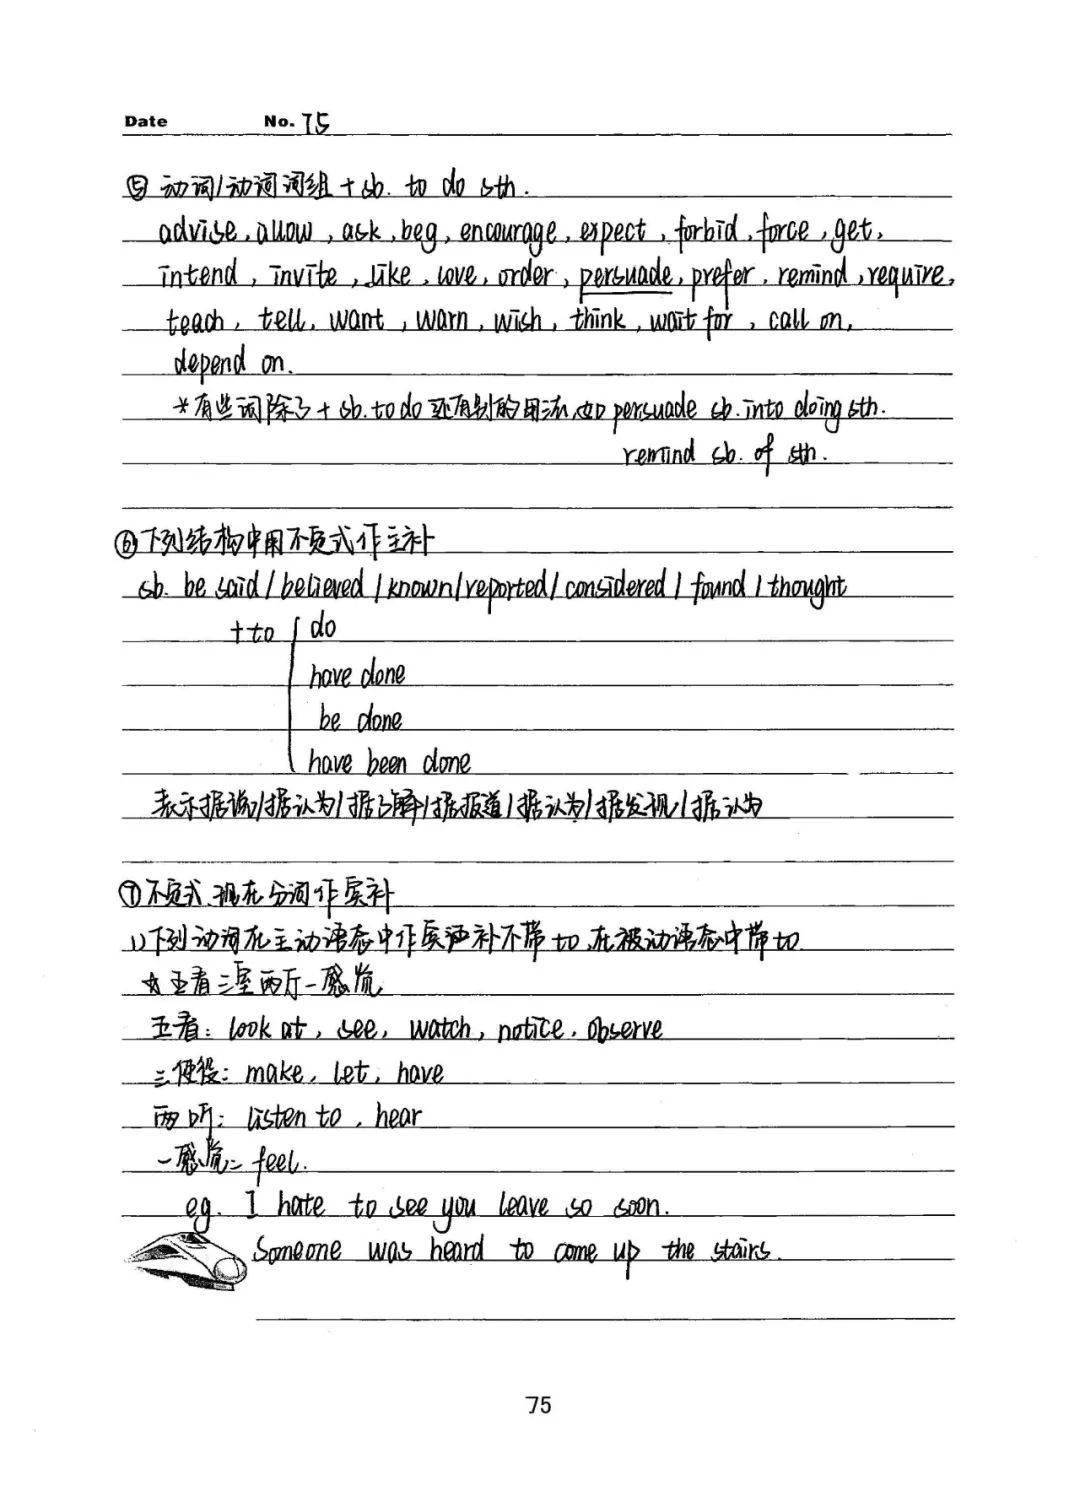 Date No. 75
⑤ 动词/动词词组 + sb. to do sth.
advise, allow, ask, beg, encourage, expect, forbid, force, get,
intend, invite, like, love, order, persuade, prefer, remind, require,
teach, tell, want, warn, wish, think, wait for, call on,
depend on.
*有些词除了+ sb. to do 还有别的用法 如 persuade sb. into doing sth.
remind sb. of sth.
⑥下列结构中用不定式作主补
sb. be said / believed / known / reported / considered / found / thought
+ to do
have done
be done
have been done
表示据说/据认为/据了解/据报道/据认为/据发现/据认为
⑦不定式、现在分词作宾补
1)下列动词在主动语态中作宾补不带to,在被动语态中带to.
☆五看三室两厅一感觉
五看: look at, see, watch, notice, observe
三使役: make, let, have
两听: listen to, hear
一感觉: feel.
eg. I hate to see you leave so soon.
Someone was heard to come up the stairs.
75